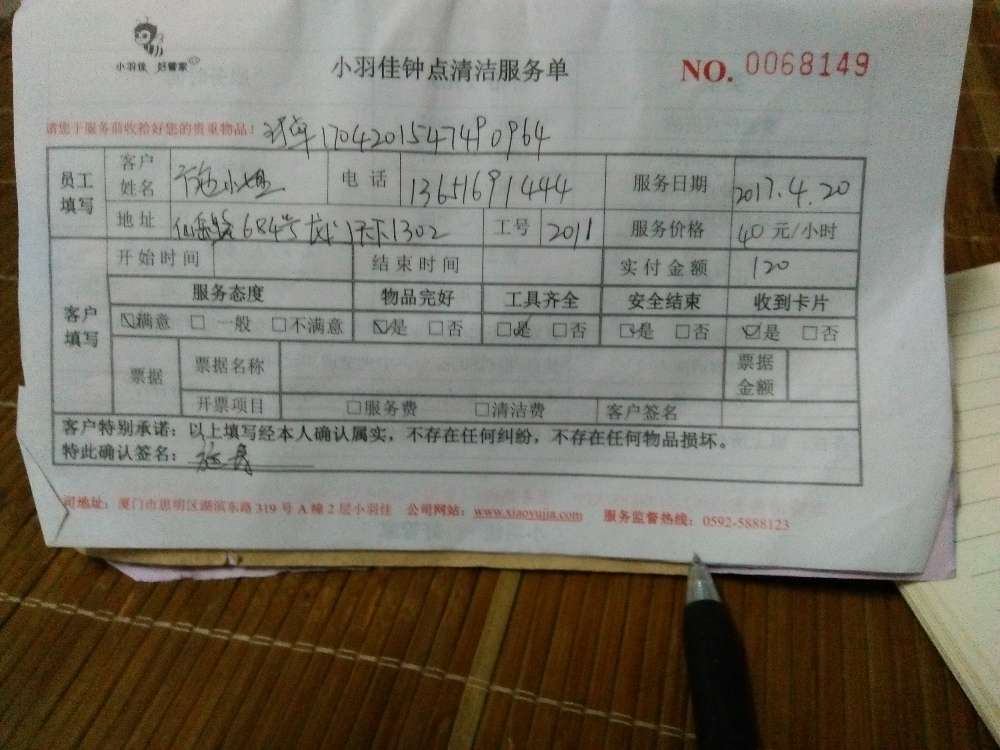 小羽佳 好管家
小羽佳钟点清洁服务单
NO. 0068149
请您于服务前收拾好您的贵重物品！
1704201547490964
员工填写 客户姓名 施小姐 电话 13651691444 服务日期 2017.4.20
地址 仙岳路684号 1302 工号 2011 服务价格 40元/小时
客户填写 开始时间 结束时间 实付金额 120
服务态度 物品完好 工具齐全 安全结束 收到卡片
☑满意 □一般 □不满意 ☑是 □否 ☑是 □否 ☑是 □否 ☑是 □否
票据 票据名称 票据金额
开票项目 □服务费 □清洁费 客户签名
客户特别承诺：以上填写经本人确认属实，不存在任何纠纷，不存在任何物品损坏。
特此确认签名：
司地址：厦门市思明区湖滨东路319号A幢2层小羽佳 公司网站：www.xiaoyujia.com 服务监督热线：0592-5888123